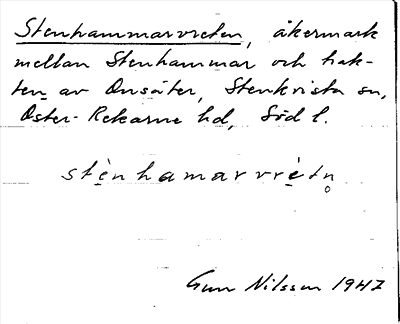 Stenhammarvreten, åkermark
mellan Stenhammar och trak-
ten av Onsäter, Stenkvista sn,
Öster-Rekarne hd, Söd l.
stènhamarvrètn̥
Gun Nilsson 1947